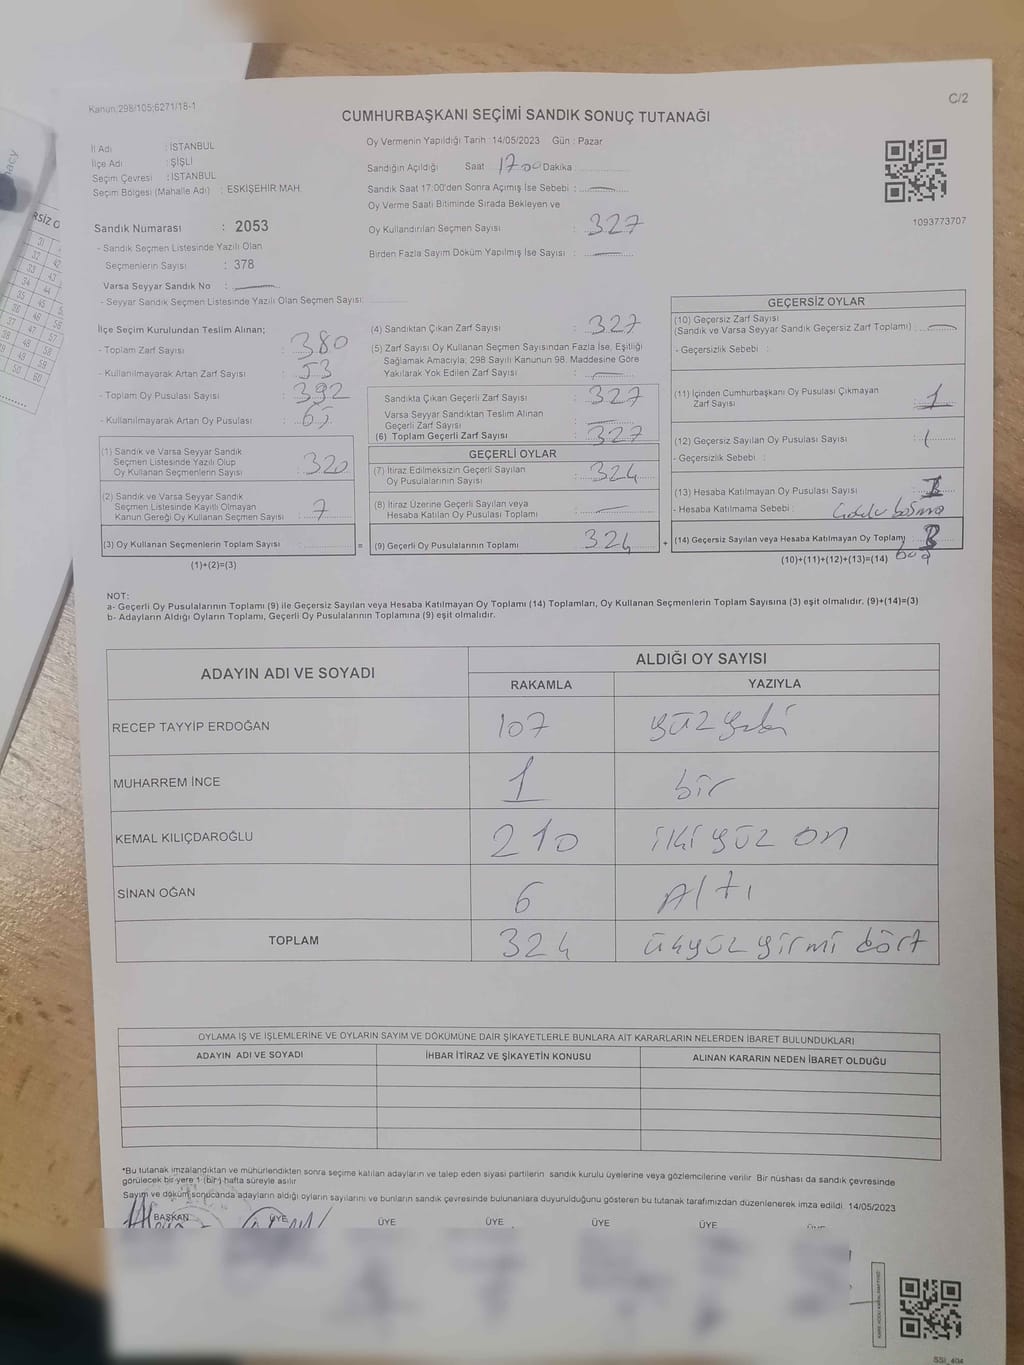 Kanun:298/105;6271/18-1
C/2
CUMHURBAŞKANI SEÇİMİ SANDIK SONUÇ TUTANAĞI
İl Adı : İSTANBUL
İlçe Adı : ŞİŞLİ
Seçim Çevresi : İSTANBUL
Seçim Bölgesi (Mahalle Adı) : ESKİŞEHİR MAH.
Sandık Numarası : 2053
- Sandık Seçmen Listesinde Yazılı Olan
Seçmenlerin Sayısı : 378
Varsa Seyyar Sandık No :
- Seyyar Sandık Seçmen Listesinde Yazılı Olan Seçmen Sayısı:
Oy Vermenin Yapıldığı Tarih : 14/05/2023 Gün : Pazar
Sandığın Açıldığı Saat 17 00 Dakika
Sandık Saat 17:00'den Sonra Açımış İse Sebebi :
Oy Verme Saati Bitiminde Sırada Bekleyen ve
Oy Kullandırılan Seçmen Sayısı : 327
Birden Fazla Sayım Döküm Yapılmış İse Sayısı :
1093773707
İlçe Seçim Kurulundan Teslim Alınan;
- Toplam Zarf Sayısı : 380
- Kullanılmayarak Artan Zarf Sayısı : 53
- Toplam Oy Pusulası Sayısı : 392
- Kullanılmayarak Artan Oy Pusulası : 65
(1) Sandık ve Varsa Seyyar Sandık
Seçmen Listesinde Yazılı Olup
Oy Kullanan Seçmenlerin Sayısı : 320
(2) Sandık ve Varsa Seyyar Sandık
Seçmen Listesinde Kayıtlı Olmayan
Kanun Gereği Oy Kullanan Seçmen Sayısı : 7
(3) Oy Kullanan Seçmenlerin Toplam Sayısı : =
(1)+(2)=(3)
(4) Sandıktan Çıkan Zarf Sayısı : 327
(5) Zarf Sayısı Oy Kullanan Seçmen Sayısından Fazla İse, Eşitliği
Sağlamak Amacıyla; 298 Sayılı Kanunun 98. Maddesine Göre
Yakılarak Yok Edilen Zarf Sayısı :
Sandıkta Çıkan Geçerli Zarf Sayısı : 327
Varsa Seyyar Sandıktan Teslim Alınan
Geçerli Zarf Sayısı :
(6) Toplam Geçerli Zarf Sayısı : 327
GEÇERLİ OYLAR
(7) İtiraz Edilmeksizin Geçerli Sayılan
Oy Pusulalarının Sayısı : 324
(8) İtiraz Üzerine Geçerli Sayılan veya
Hesaba Katılan Oy Pusulası Toplamı :
(9) Geçerli Oy Pusulalarının Toplamı : 324 +
GEÇERSİZ OYLAR
(10) Geçersiz Zarf Sayısı
(Sandık ve Varsa Seyyar Sandık Geçersiz Zarf Toplamı) :
- Geçersizlik Sebebi :
(11) İçinden Cumhurbaşkanı Oy Pusulası Çıkmayan
Zarf Sayısı : 1
(12) Geçersiz Sayılan Oy Pusulası Sayısı : 1
- Geçersizlik Sebebi :
(13) Hesaba Katılmayan Oy Pusulası Sayısı :
- Hesaba Katılmama Sebebi :
(14) Geçersiz Sayılan veya Hesaba Katılmayan Oy Toplamı :
(10)+(11)+(12)+(13)=(14)
NOT:
a- Geçerli Oy Pusulalarının Toplamı (9) ile Geçersiz Sayılan veya Hesaba Katılmayan Oy Toplamı (14) Toplamları, Oy Kullanan Seçmenlerin Toplam Sayısına (3) eşit olmalıdır. (9)+(14)=(3)
b- Adayların Aldığı Oyların Toplamı, Geçerli Oy Pusulalarının Toplamına (9) eşit olmalıdır.
ADAYIN ADI VE SOYADI ALDIĞI OY SAYISI
RAKAMLA YAZIYLA
RECEP TAYYİP ERDOĞAN 107 yüz yedi
MUHARREM İNCE 1 bir
KEMAL KILIÇDAROĞLU 210 iki yüz on
SİNAN OĞAN 6 Altı
TOPLAM 324 üçyüz yirmi dört
OYLAMA İŞ VE İŞLEMLERİNE VE OYLARIN SAYIM VE DÖKÜMÜNE DAİR ŞİKAYETLERLE BUNLARA AİT KARARLARIN NELERDEN İBARET BULUNDUKLARI
ADAYIN ADI VE SOYADI İHBAR İTİRAZ VE ŞİKAYETİN KONUSU ALINAN KARARIN NEDEN İBARET OLDUĞU
*Bu tutanak imzalandıktan ve mühürlendikten sonra seçime katılan adayların ve talep eden siyasi partilerin sandık kurulu üyelerine veya gözlemcilerine verilir. Bir nüshası da sandık çevresinde
görülecek bir yere 1 (bir) hafta süreyle asılır
Sayım ve döküm sonucunda adayların aldığı oyların sayılarını ve bunların sandık çevresinde bulunanlara duyurulduğunu gösteren bu tutanak tarafımızdan düzenlenerek imza edildi. 14/05/2023
BAŞKAN ÜYE ÜYE ÜYE ÜYE ÜYE